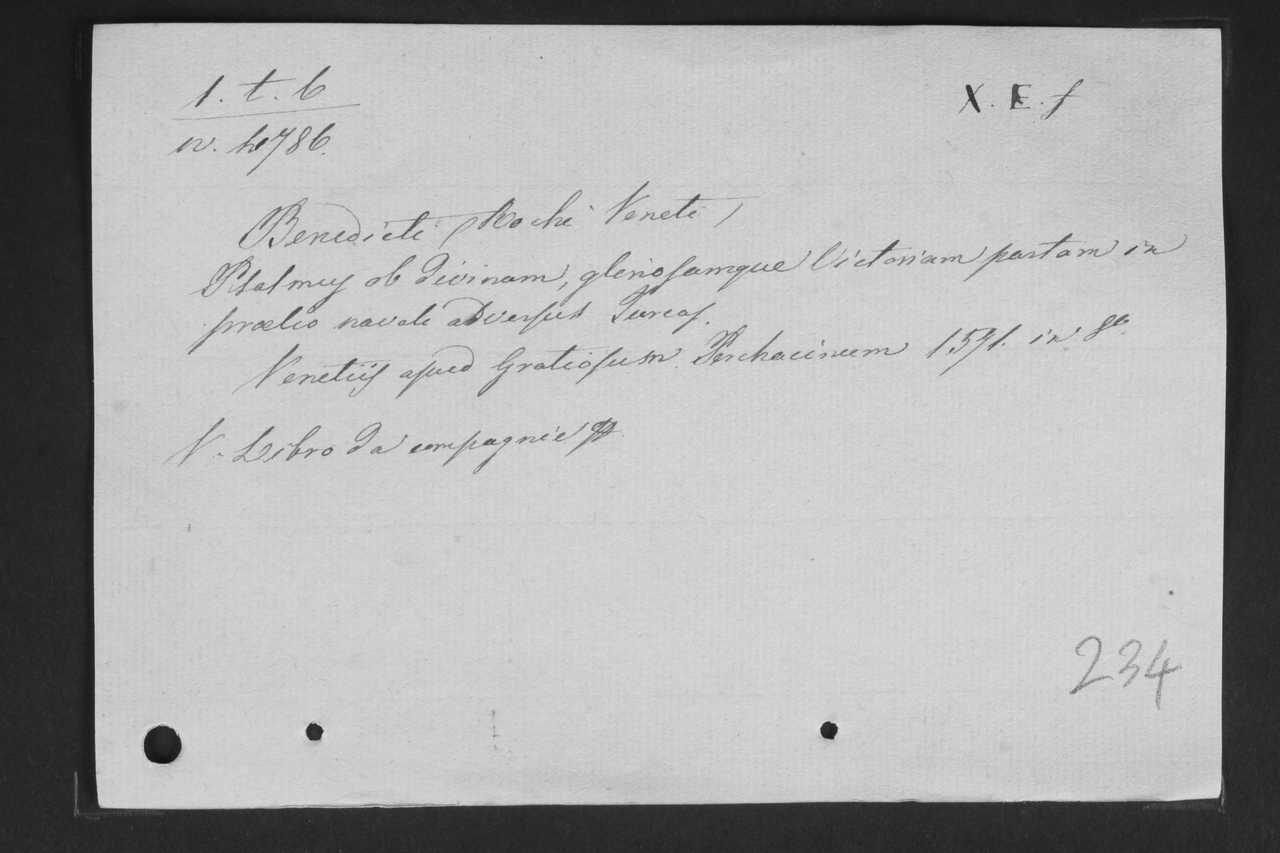 1. t. 6
X. E. f
n. 4786.
Benedicti Rochi Veneti
Psalmus ob divinam, gloriosamque Victoriam partam in
prælio navali adversus Turcas.
Venetijs apud Gratiosum Perchacinum 1571. in 8°
V. Libro da compagnie
234